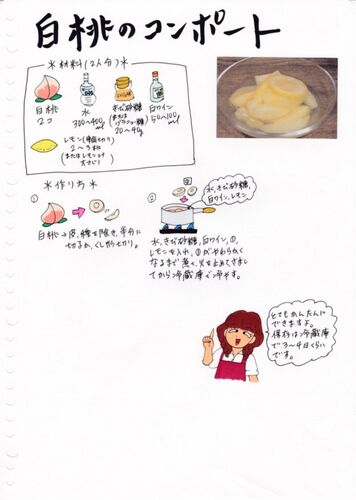 白桃のコンポート
＊材料(2人分)＊
白桃
2コ
水
300〜400
ml
きび砂糖
(または
グラニュー糖)
20〜40g
白ワイン
50〜100
ml
レモン(輪切り)
2〜3枚
(またはレモン汁
大さじ1)
＊作り方＊
①
白桃→皮、種を除き、半分に
切るか、くし形切り。
②
①
水、きび砂糖、
白ワイン、レモン
水、きび砂糖、白ワイン、①、
レモンを入れ、①がやわらかく
なるまで煮く。火を止めてさまし
てから冷蔵庫で冷やす。
とてもかんたんに
できますよ。
保存は冷蔵庫
で3〜4日くらい
です。